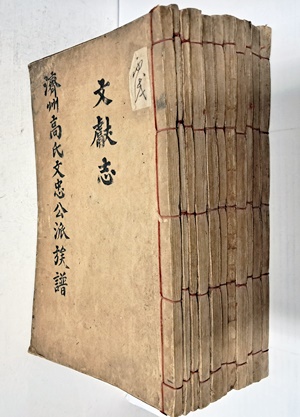 文獻志
濟州高氏文忠公派族譜